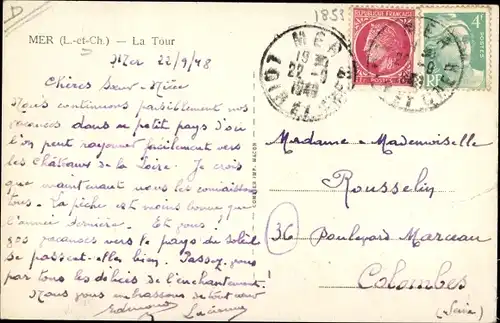 1853
MER (L.-et-Ch.) — La Tour
Mer 22/9/48
Chères Sœur - Nièce
Nous continuons paisiblement nos
vacances dans ce petit pays d'où
l'on peut rayonner facilement vers
les Châteaux de la Loire. Je crois
que maintenant nous les connaissons
tous. La pêche est moins bonne que
l'année dernière. Et vous?
vos vacances vers le pays du soleil
se passent-elles bien. Passez-vous
par tous les délices de l'enchantement!
Nous vous embrassons de tout cœur
Edmond Lucienne
COMBIER IMP. MACON
MER
LOIR ET CHER
4F
Madame - Mademoiselle
Rousselin
36 Boulevard Marceau
Colombes
(Seine)